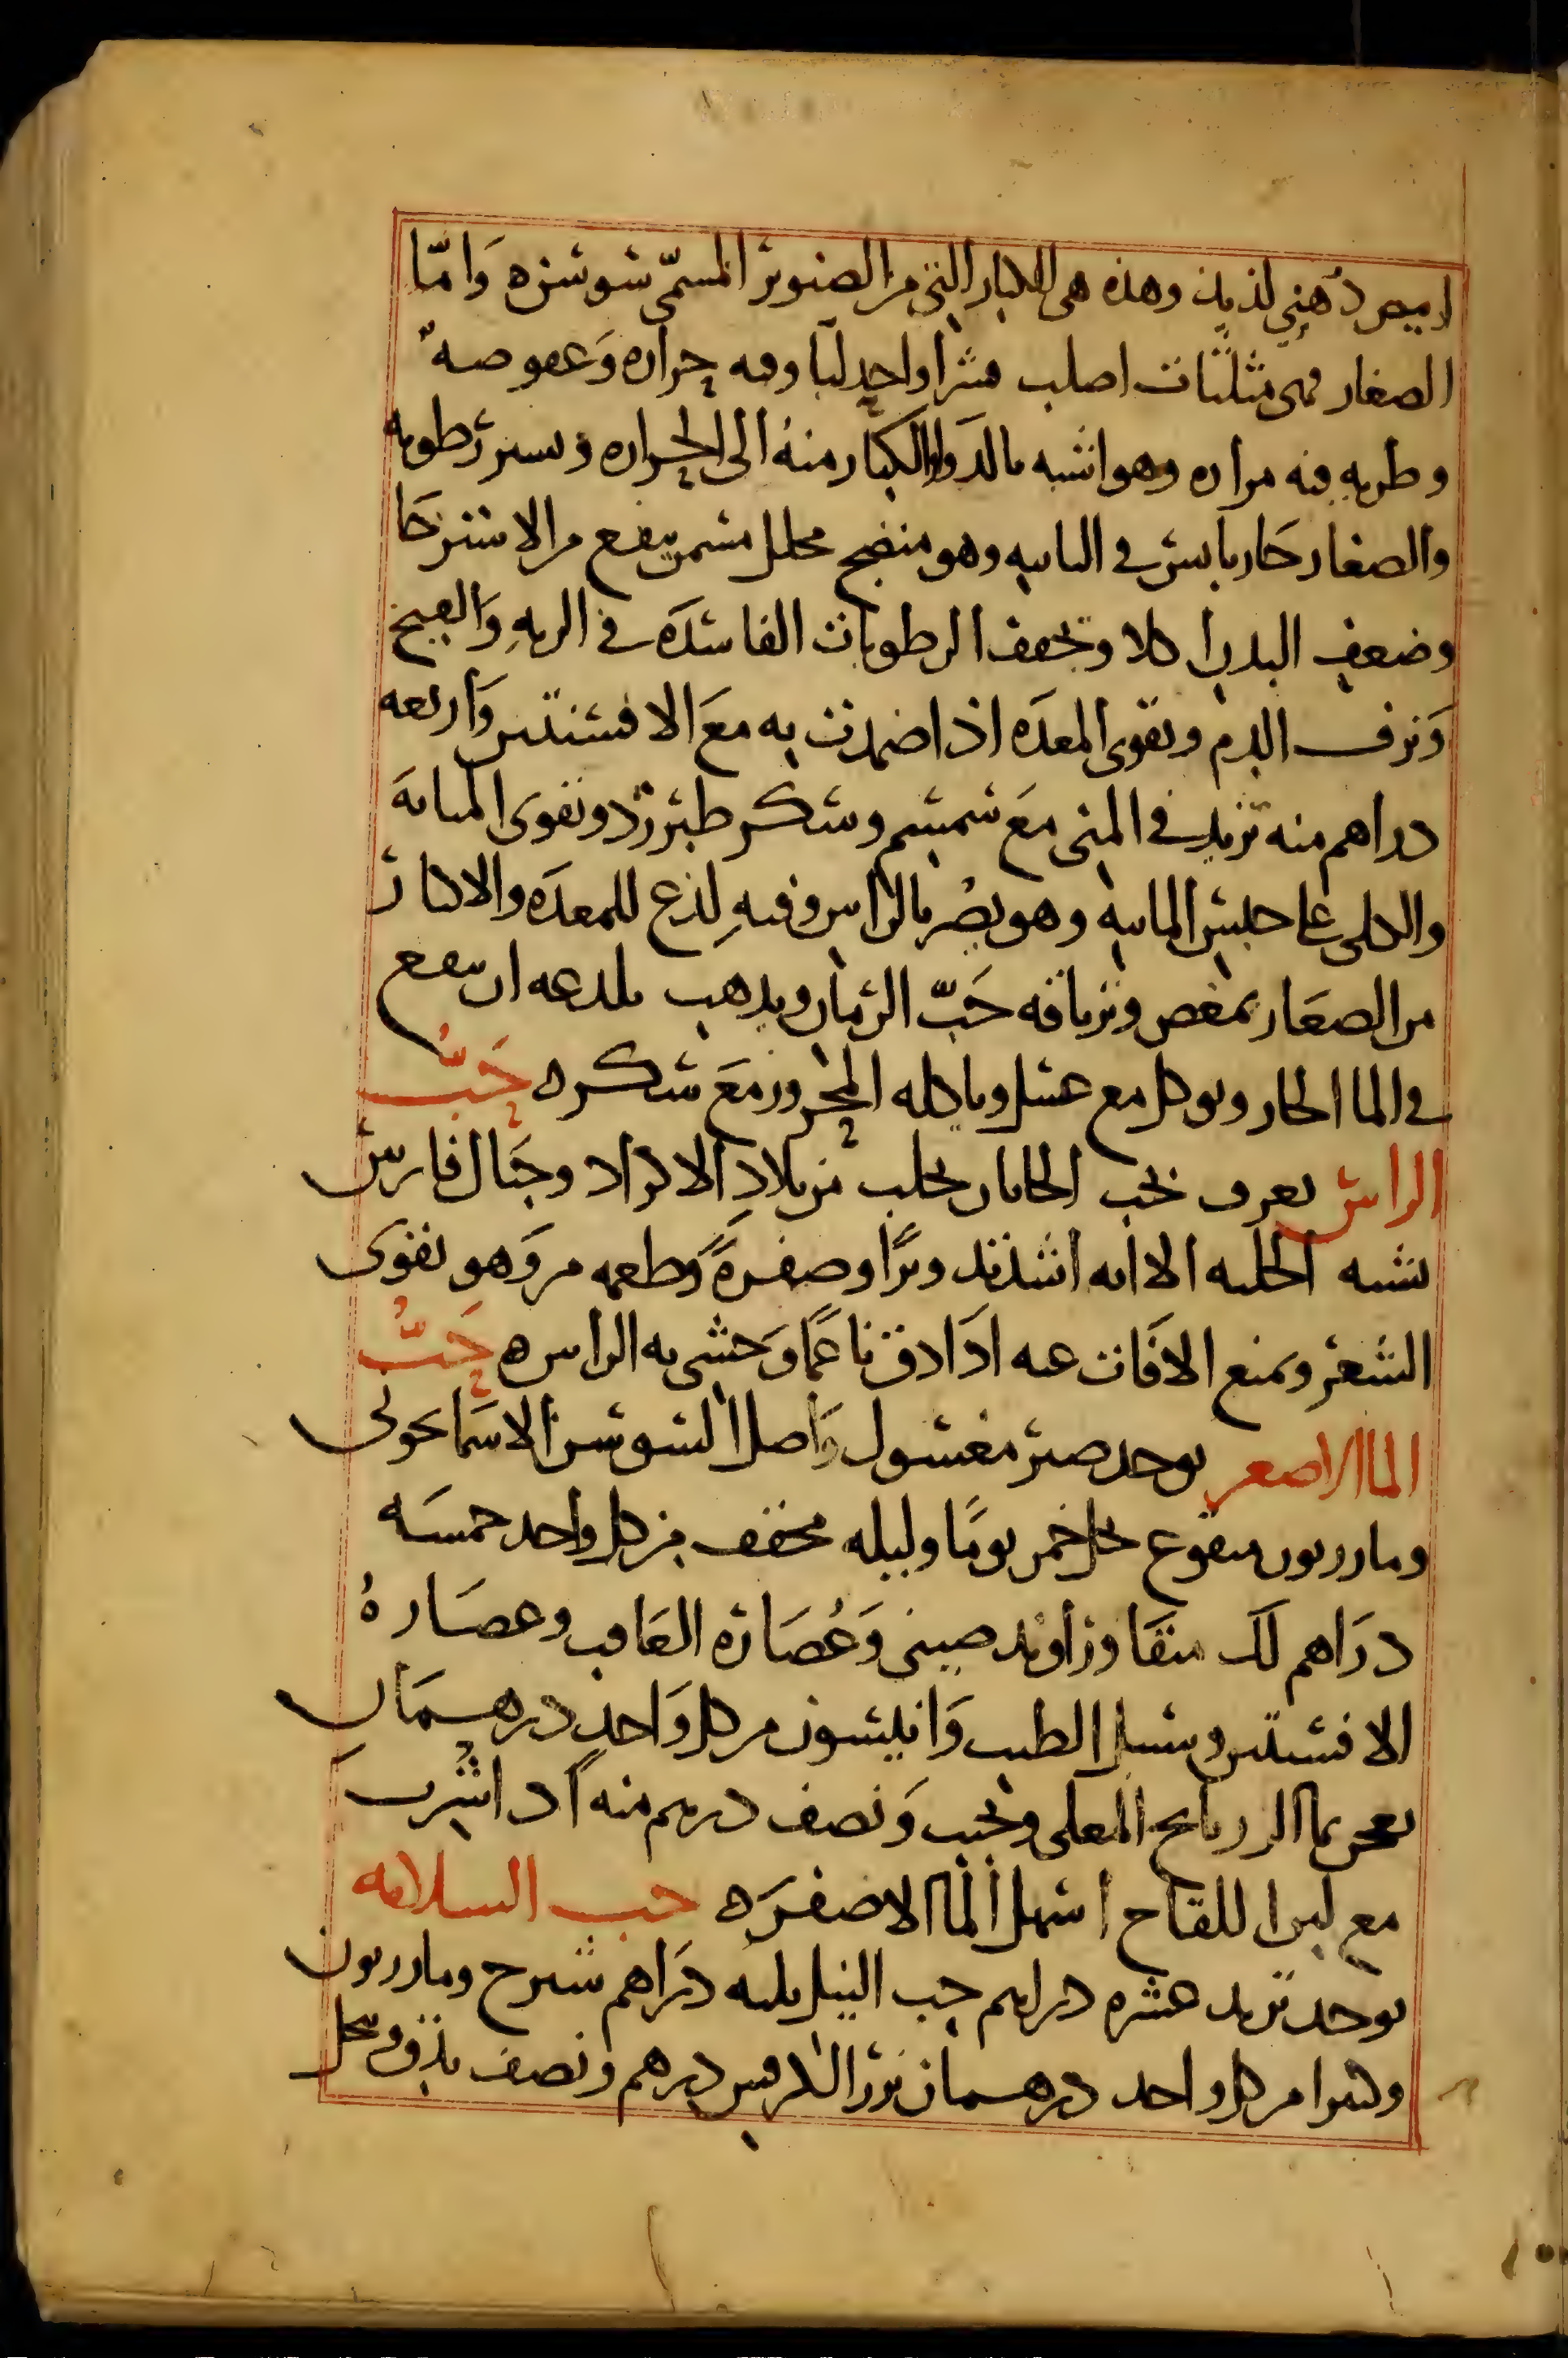 ابيض دُهني لذيذ وهذه هى الكبار التى من الصنوبر المسمّى سوسنه وَامّا
الصغار فهى مثلثات اصلب قشرا واحد لبا وفيه حراره وَعفوصهٌ
وطريه فيه مراره وهو اشبه بالدوا والكبار منهُ الى الحراره ويسير رطوبه
والصغار حَار يابس فى الثانيه وهو منضج محلل مسمن ينفع من الاسترخا
وضعف البدن اكلا ويجفف الرطوبات الفاسدَه فى الريهِ وَالقيح
وَنزف الدم ويقوى المعدَه اذا ضمدت به معَ الافسنتين وَاربعه
دراهم منه تزيد فى المنى معَ سمسم وسكر طبرزد ويقوى المثانهَ
والكلى على حبس المائيه وهو يضر بالراس وفيهِ لذع للمعدَه والاكثار
من الصغَار يمغص وترياقه حَبّ الرمان ويذهب بلذعه ان ينقع
فى الما الحار ويوكل مع عسل وياكله المحرور معَ سكر ه حَبُّ
الراس يعرف بحب يجلب من بلادِ الاكراد وجبَال فارس
يشبه الحلبه الا انه اشد تدويرًا وصفرةً وطعمه مر وَهو يقوى
الشعر ويمنع الافَات عنه اذَا دق ناعمًا وَحشى به الراس ه حَبُّ
الما الاصفر يوخذ صبر مغسول وَاصل السوسن الاسمَانجونى
ومازريون منقوع بخل خمر يومًا وليله مجفف من كل واحد خمسَه
درَاهم لك منقا وراوند صينى وَعُصَارَه الغَافت وعصَارهُ
الافسنتين وسنبل الطيب وَانيسون من كل وَاحدٍ درهمَان
يعجن بما الرازيانج المغلى ويحبب وَنصف درهم منه اذا شُرب
مع لبن اللقاح اسهل الما الاصفرَ ه حب السلامه
يوخذ تربد عشره دراهم حب النيل ثلثه درَاهم سرح ومازريون
وكثيرا من كل واحد درهمان بزر الكرفس درهم ونصف يدق وينخل